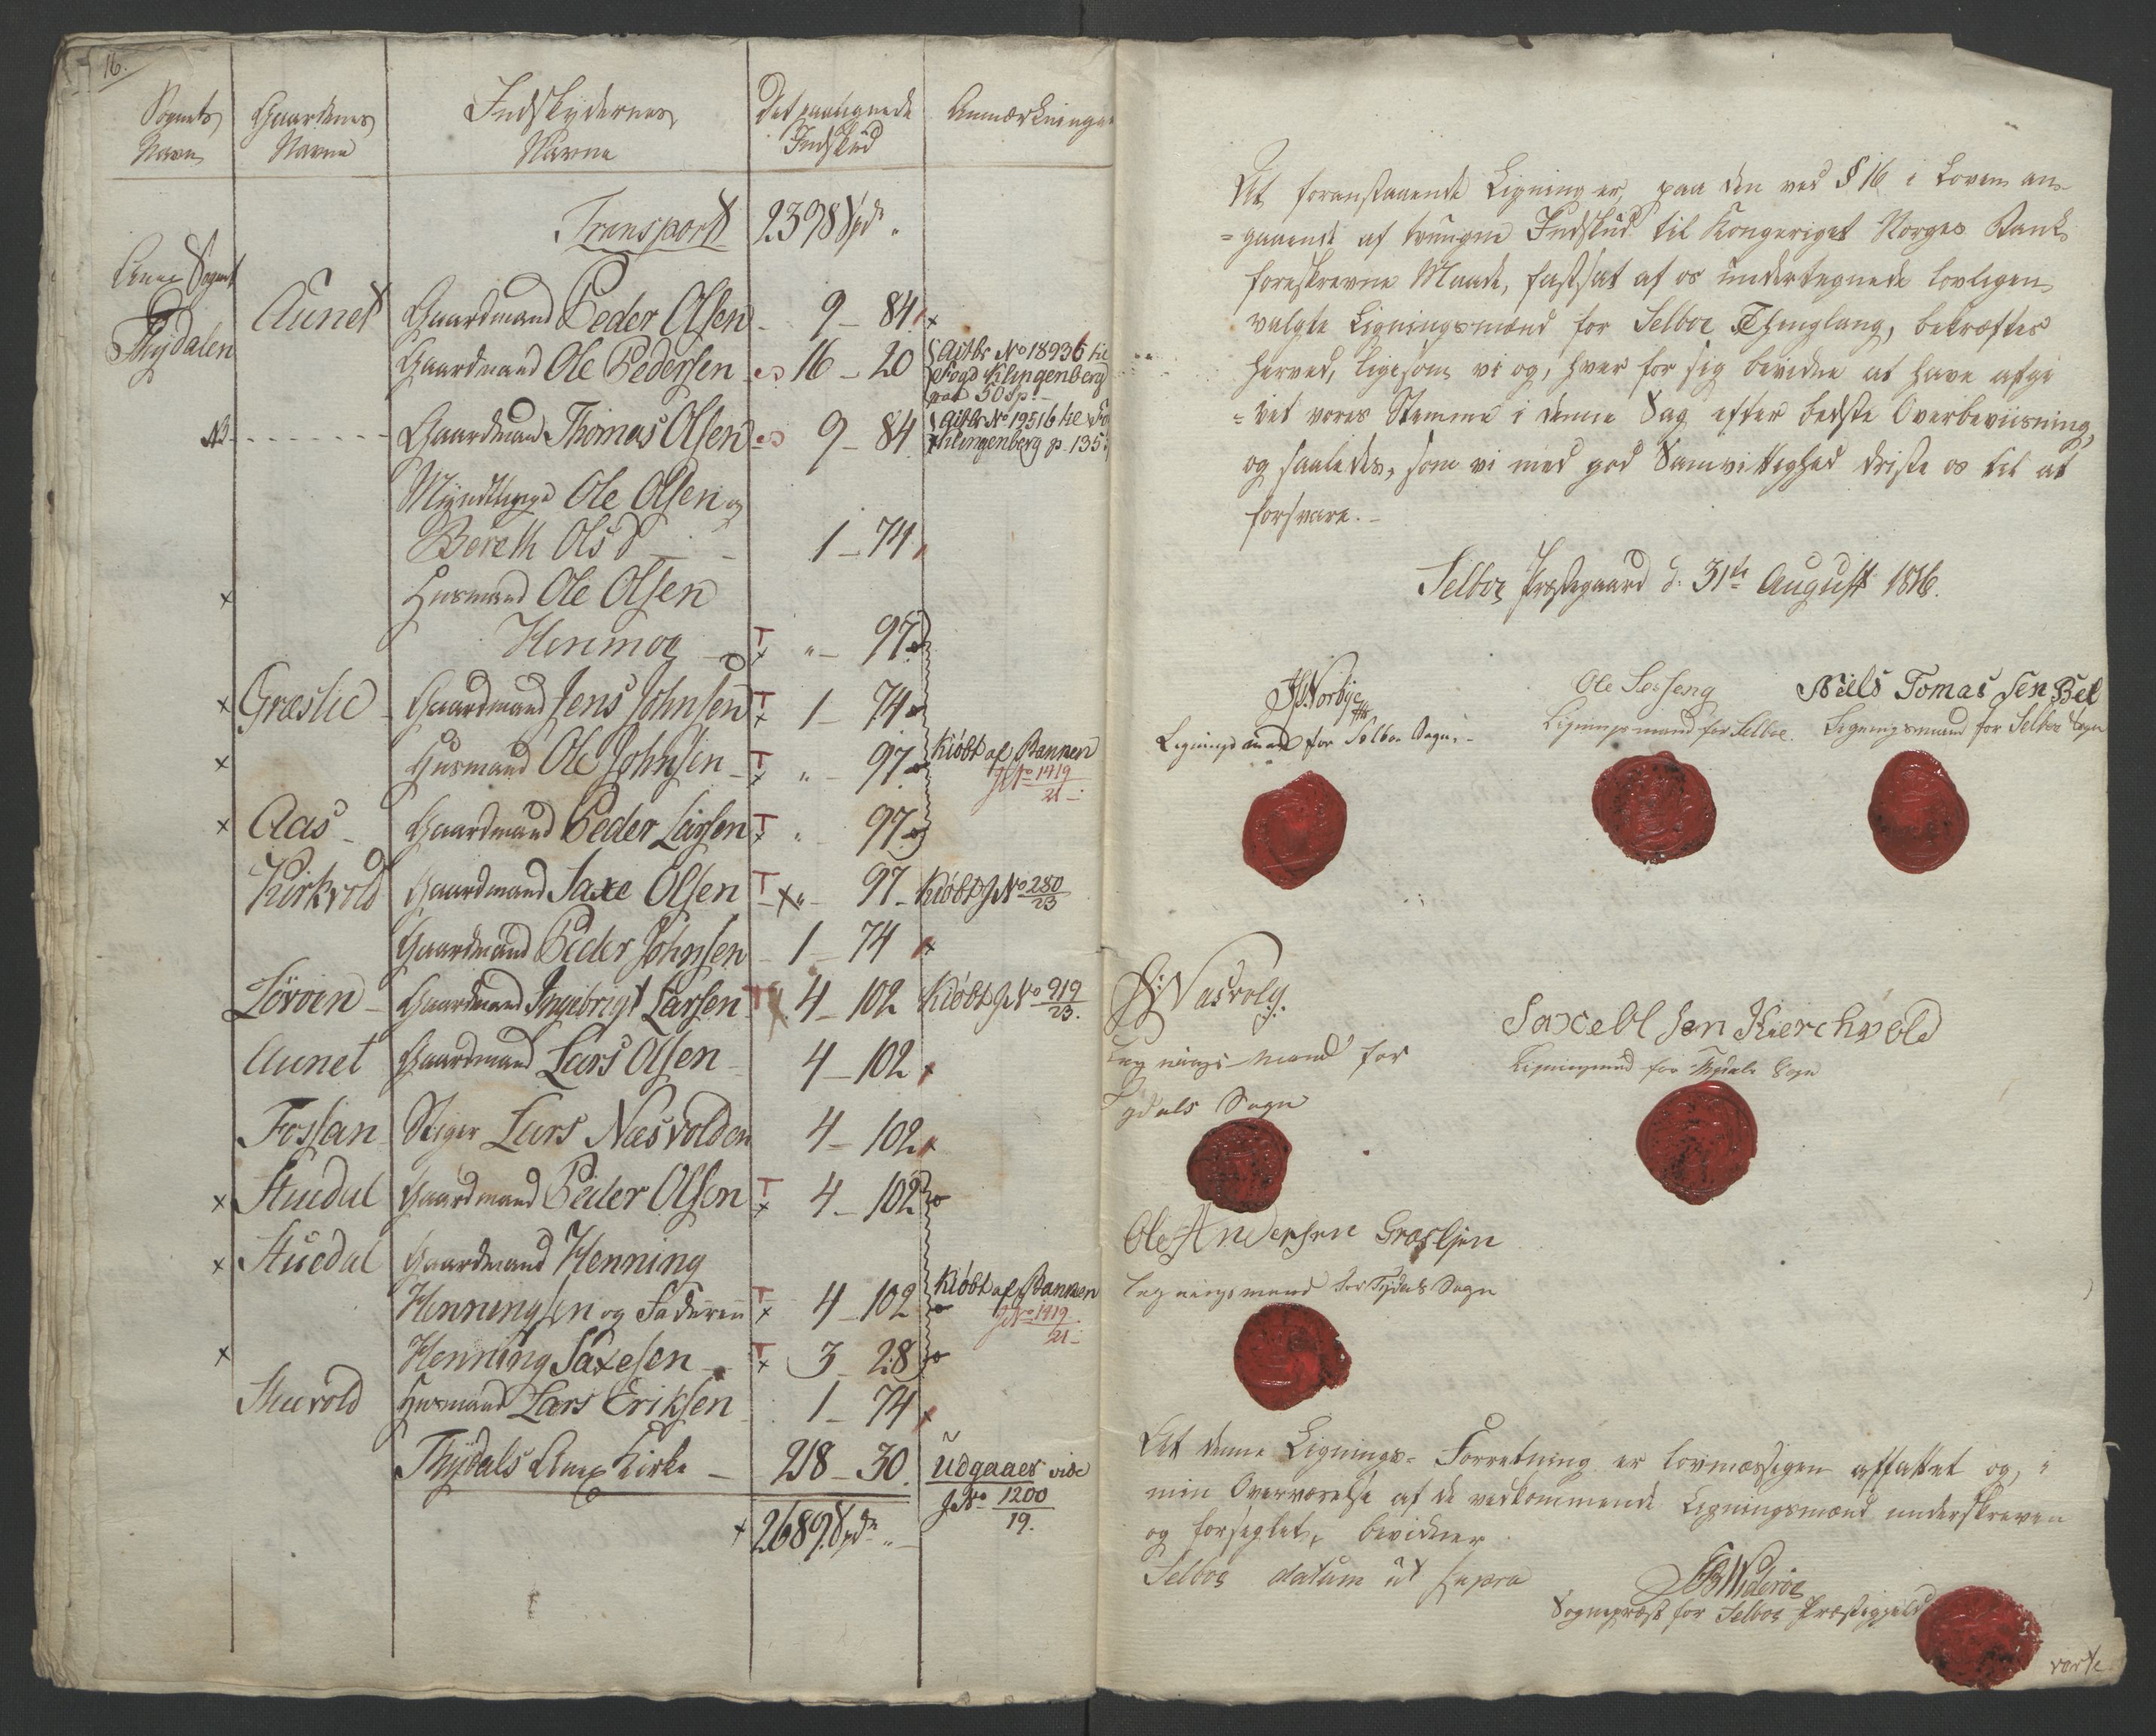 16.
Sognets Navn
Gaardenes Navne
Indskydernes Navne
Det paalignede Indskud
Anmærkninger
Transport 2398 Spd „
Anex Sognet
Thydalen
Aunet Gaardmand Peder Olsen 9 - 84 x
Gaardmand Ole Pedersen 16 - 20 Actbr No 18936 til
Fogd Klingenberg
paa 50 Sp.
NB Gaardmand Thomas Olsen 9 - 84 Actbr No 19516 til Fo
Klingenberg p. 135
Myndtlinge Ole Olsen og
Bereth Olsd 1 - 74
x Husmand Ole Olsen
Henmoe T x „ - 97
x Græslie Gaardmand Jens Johnsen T x 1 - 74
x Husmand Ole Johnsen T x „ - 97 Kiöbt af Banken
J No 1419/21
x Aas Gaardmand Peder Larsen T x „ 97
Kirkvold Gaardmand Saxe Olsen T x „ - 97 Kiöbt J No 280/23
Gaardmand Peder Johnsen 1 - 74 x
Lövöen Gaardmand Ingebrigt Larsen T 4 - 102 Kiöbt J No 919/23.
Aunet Gaardmand Lars Olsen 4 - 102 x
Fossan Stiger Lars Næsvolden 4 - 102
x Stuedal Gaardmand Peder Olsen T x 4 - 102
x Stuedal Gaardmand Henning
Henningsen og Faderen T x 4 - 102 Kiöbt af Banken
J No 1419/21
x Henning Saxesen T x 3 - 28
Stuevold Husmand Lars Eriksen 1 - 74 x
Thydals Anex Kirke 218 - 30. Udgaaer vide
J No 1200/19.
x 2689 Spd „
At foranstaaende Ligning er, paa den ved § 16 i Loven an-
=gaaende af tvungne Indskud til Kongeriget Norges Bank
foreskrevne Maade, fastsat af os undertegnede lovligen
valgte Ligningsmænd for Selboe Thinglaug, bekræftes
herved, ligesom vi og, hver for sig bevidne at have afgi
=vet vores Stemme i denne Sag efter bedste Overbeviisning,
og saaledes, som vi med god Samvittighed driste os til at
forsvare.
Selboe Præstegaard d. 31te August 1816.
Norbye
Ligningsmand for Selboe Sogn
Ole Sesseng
Ligningsmand for Selboe.
Niels Tomas sen Bel
Ligningsmand for Selboe Sogn
Næsvold.
Lignings-mand for
Tydals Sogn
Saxe Ol sen Kierchvold
Ligningsmand for Thydals Sogn
Ole Andersen Græsljen
Ligningsmand for Tydals Sogn
At denne Lignings-Forretning er lovmæssigen affattet og, i
min Overværelse af de vedkommende Ligningsmænd underskreven
og forseglet, bevidner
Selboe datum ut supra
Widerøe
Sognepræst for Selboe Præstegjeld